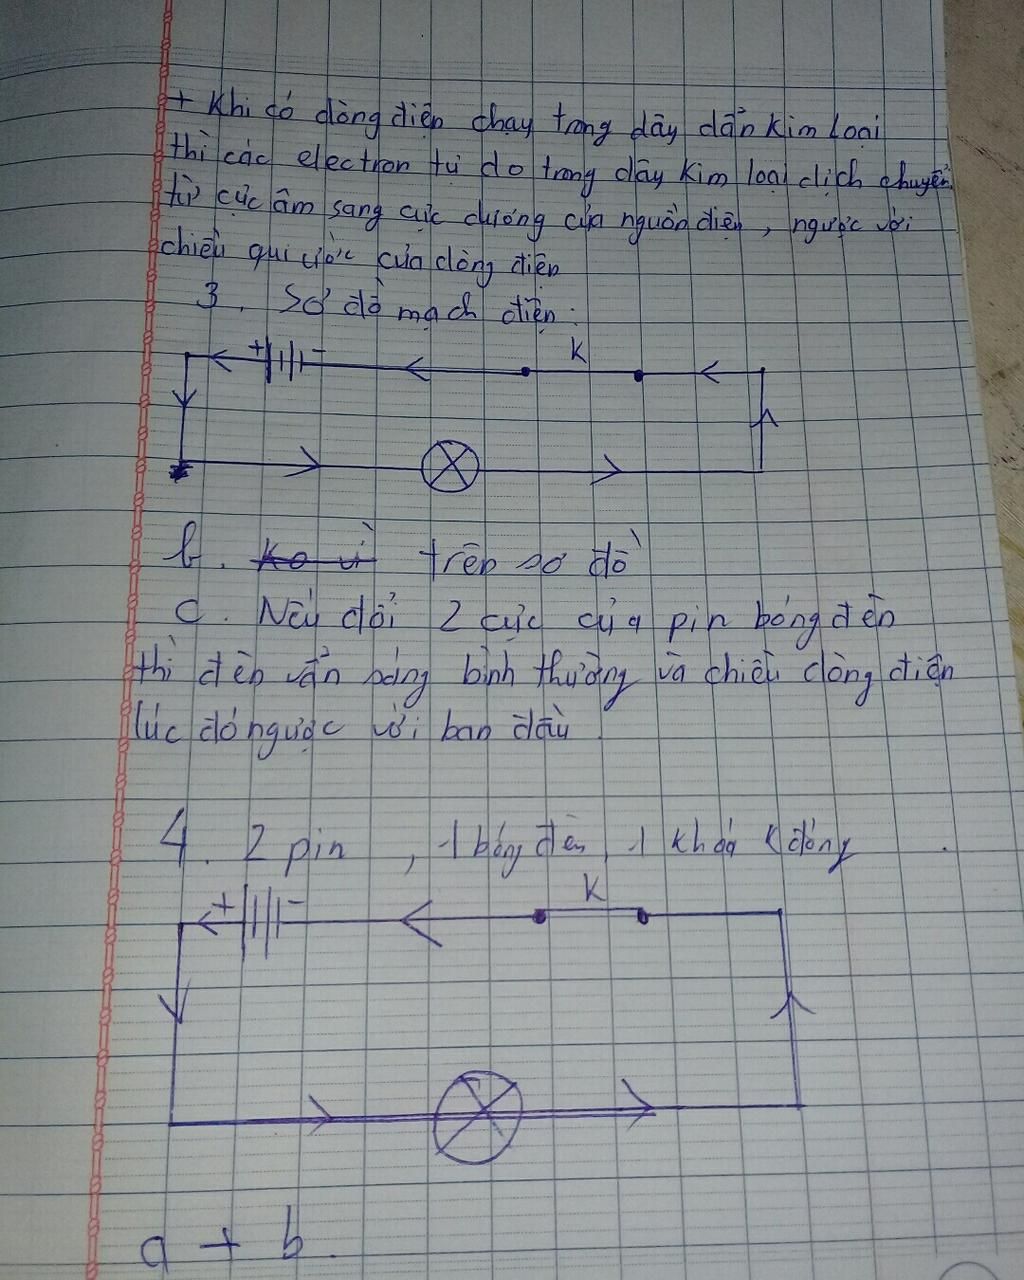 + Khi có dòng điện chạy trong dây dẫn kim loại
thì các electron tự do trong dây kim loại dịch chuyển
từ cực âm sang cực dương của nguồn điện, ngược với
chiều qui ước của dòng điện
3. Sơ đồ mạch điện:
+ - K
b. Ko vì trên sơ đồ
c. Nếu đổi 2 cực của pin bóng đèn
thì đèn vẫn sáng bình thường và chiều dòng điện
lúc đó ngược với ban đầu.
4. 2 pin, 1 bóng đèn, 1 khoá K đóng.
+ - K
a + b.